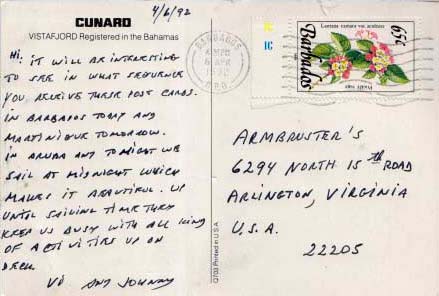 4/6/92
CUNARD
VISTAFJORD Registered in the Bahamas
Hi: IT WILL BE INTERESTING
TO SEE IN WHAT SEQUENCE
YOU RECEIVE THESE POST CARDS.
IN BARBADOS TODAY AND
MARTINIQUE TOMORROW.
IN ARUBA AND TONIGHT WE
SAIL AT MIDNIGHT WHICH
MAKES IT BEAUTIFUL. UP
UNTIL SAILING TIME THEY
KEEP US BUSY WITH ALL KIND
OF ACTIVITIES UP ON
DECK.
VI AND JOHNNY
Printed in U.S.A.
1C
BARBADOS
6 APR
1992
G.P.O.
65c
Barbados
ARMBRUSTER'S
6294 NORTH 15th ROAD
ARLINGTON, VIRGINIA
U.S.A.
22205